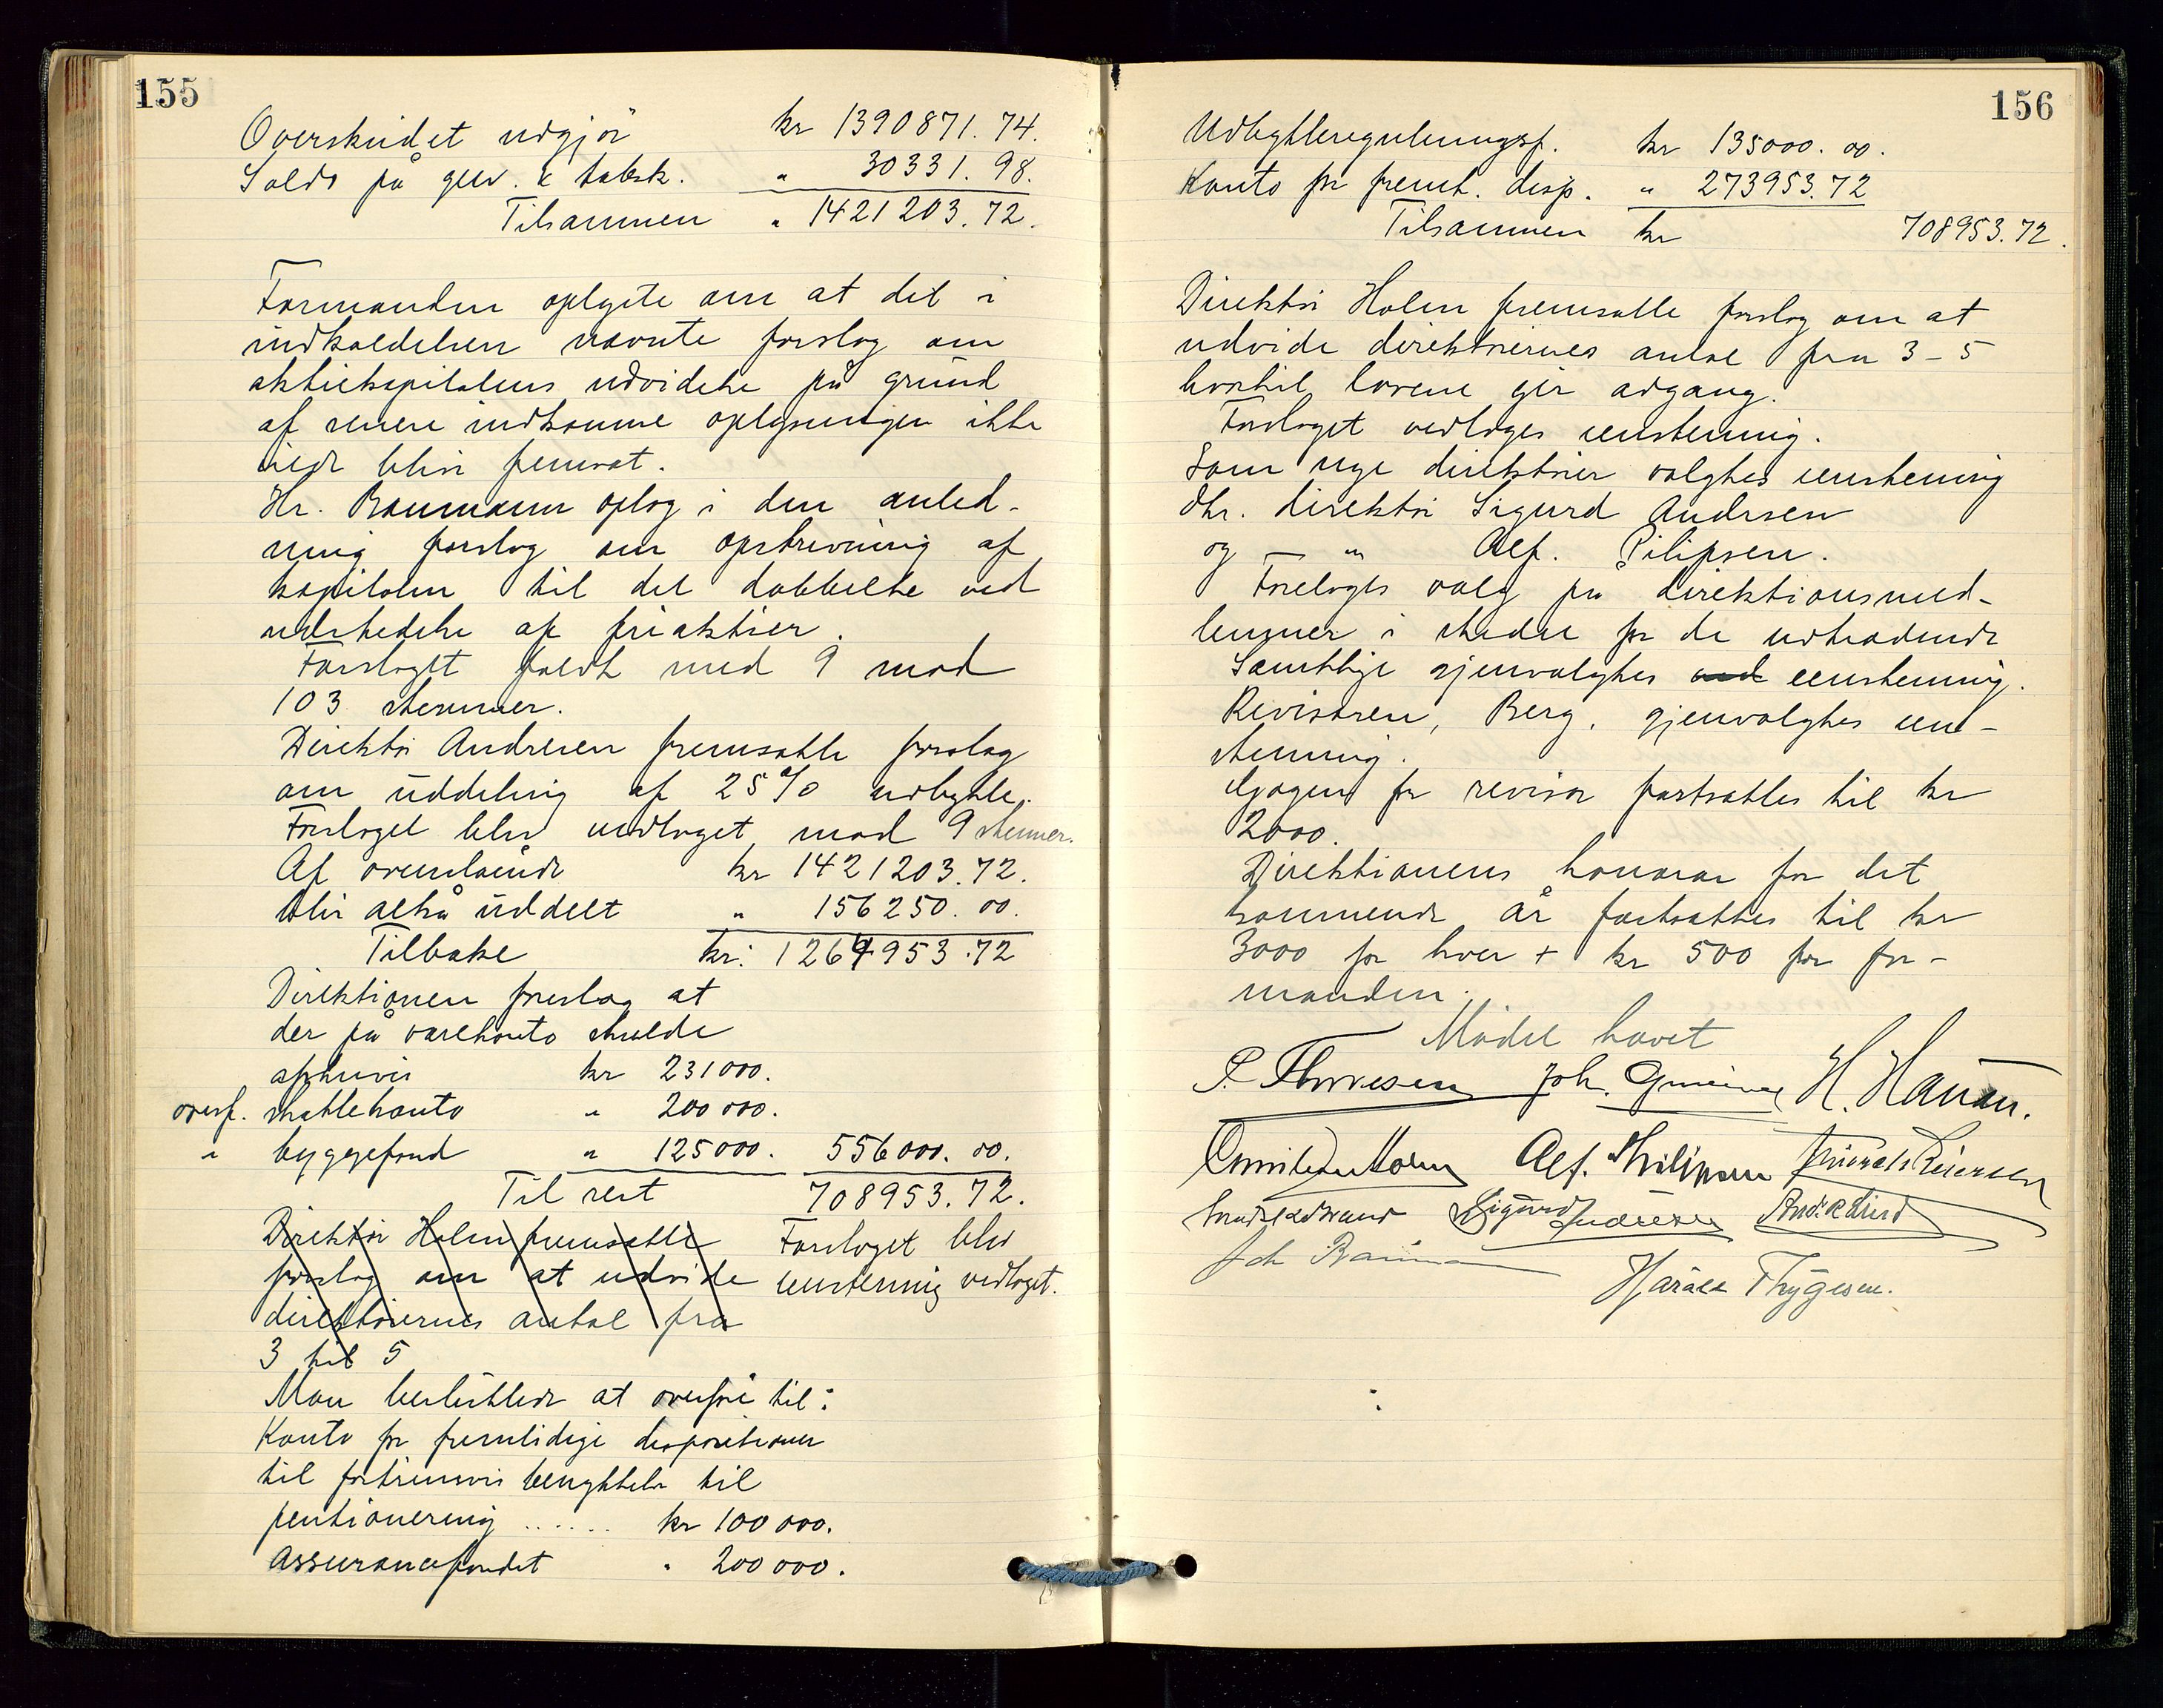 155
Overskudet udgjör kr 1390871.74.
Saldo på gev. & tabsk. " 30331.98.
Tilsammen " 1421203.72.
Formanden oplyste om at det i
indkaldelsen nævnte forslag om
aktiekapitalens udvidelse på grund
af senere indkomne oplysninger ikke
vilde blive fremsat.
Hr. Baumann optog i den anled-
ning forslag om opskrivning af
kapitalen til det dobbelte ved
udstedelse af friaktier.
Forslaget faldt med 9 mod
103 stemmer.
Direktör Andresen fremsatte forslag
om uddeling af 25% udbytte.
Forslaget blev vedtaget mod 9 stemmer.
Af ovenstående kr 1421203.72.
blir altså uddelt " 156250.00.
Tilbake kr. 1264953.72
Direktionen foreslog at
der på varekonto skulde
afskrives kr 231000.
overf. skattekonto " 200000.
" byggefond " 125000. 556000.00.
Til rest 708953.72.
Direktör Holm fremsatte Forslaget blev
forslag om at udvide enstemmig vedtaget.
direktörernes antal fra
3 til 5
Man besluttede at overföre til:
Konto for fremtidige dispositioner
til fortrinsvis benyttelse til
pentionering ...... kr 100000.
Assurancefondet " 200000.
156
Udbyttereguleringsf. kr 135000.00.
Konto for fremt. disp. " 273953.72
Tilsammen kr 708953.72.
Direktör Holm fremsatte forslag om at
udvide direktörernes antal fra 3-5
hvortil lovene gir adgang.
Forslaget vedtoges enstemmig.
Som nye direktörer valgtes enstemmig
dhr. direktör Sigurd Andresen
og — " Alf. Pilipsen.
Foretoges valg på direktionsmed-
lemmer i stedet for de udtrædende
Samtlige gjenvalgtes ved eenstemmig.
Revisoren, Berg, gjenvalgtes een-
stemmig.
Gagen for revisor fortsattes til kr
2000.
Direktionens honorar for det
kommende år fortsattes til kr
3000 for hver + kr 500 for for-
manden.
Mödet hævet
P. Thoresen Joh. H. Hansen.
Alf. Philipsen
Sigurd Andresen
Joh Baumann
Harald Thygesen.